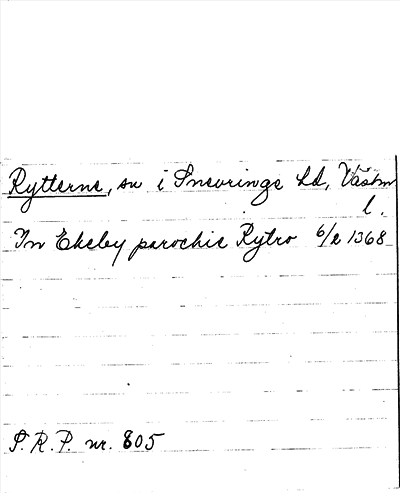 Rytterne, sn i Snevringe hd, Västm
l.
In Ekeby parochie Rytro 6/2 1368
S.R.P. nr. 805